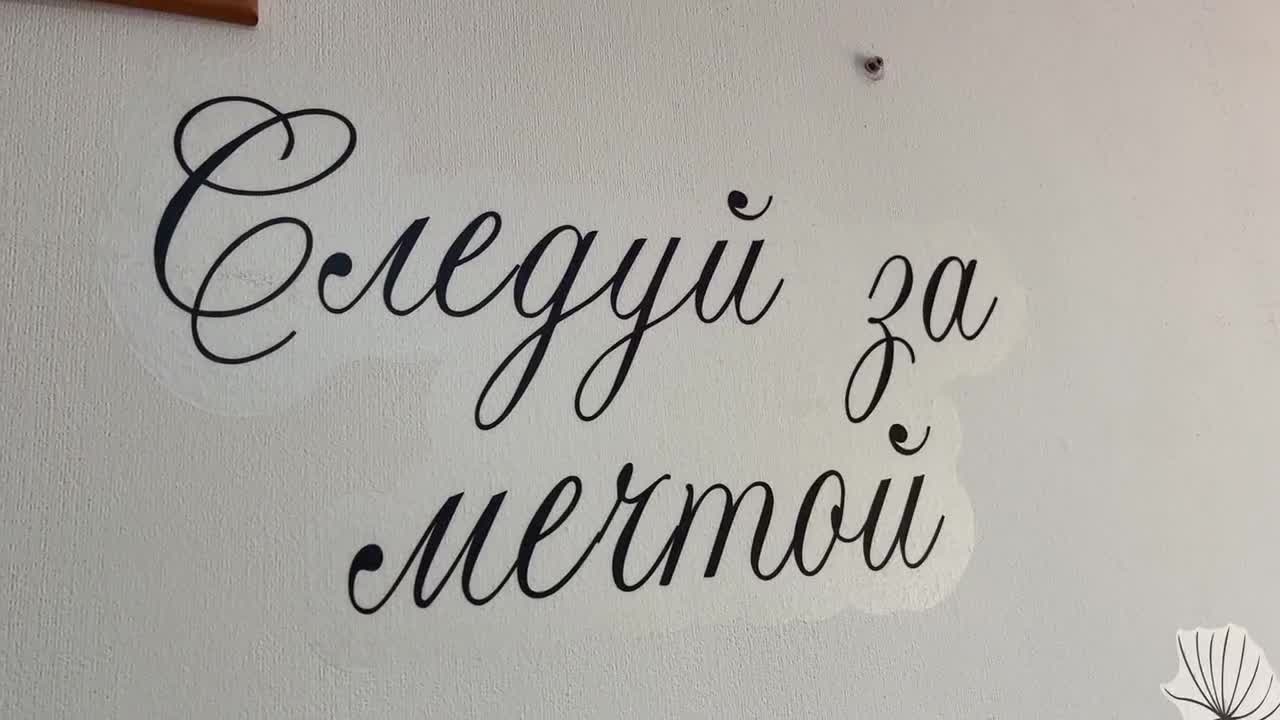 Следуй за
мечтой